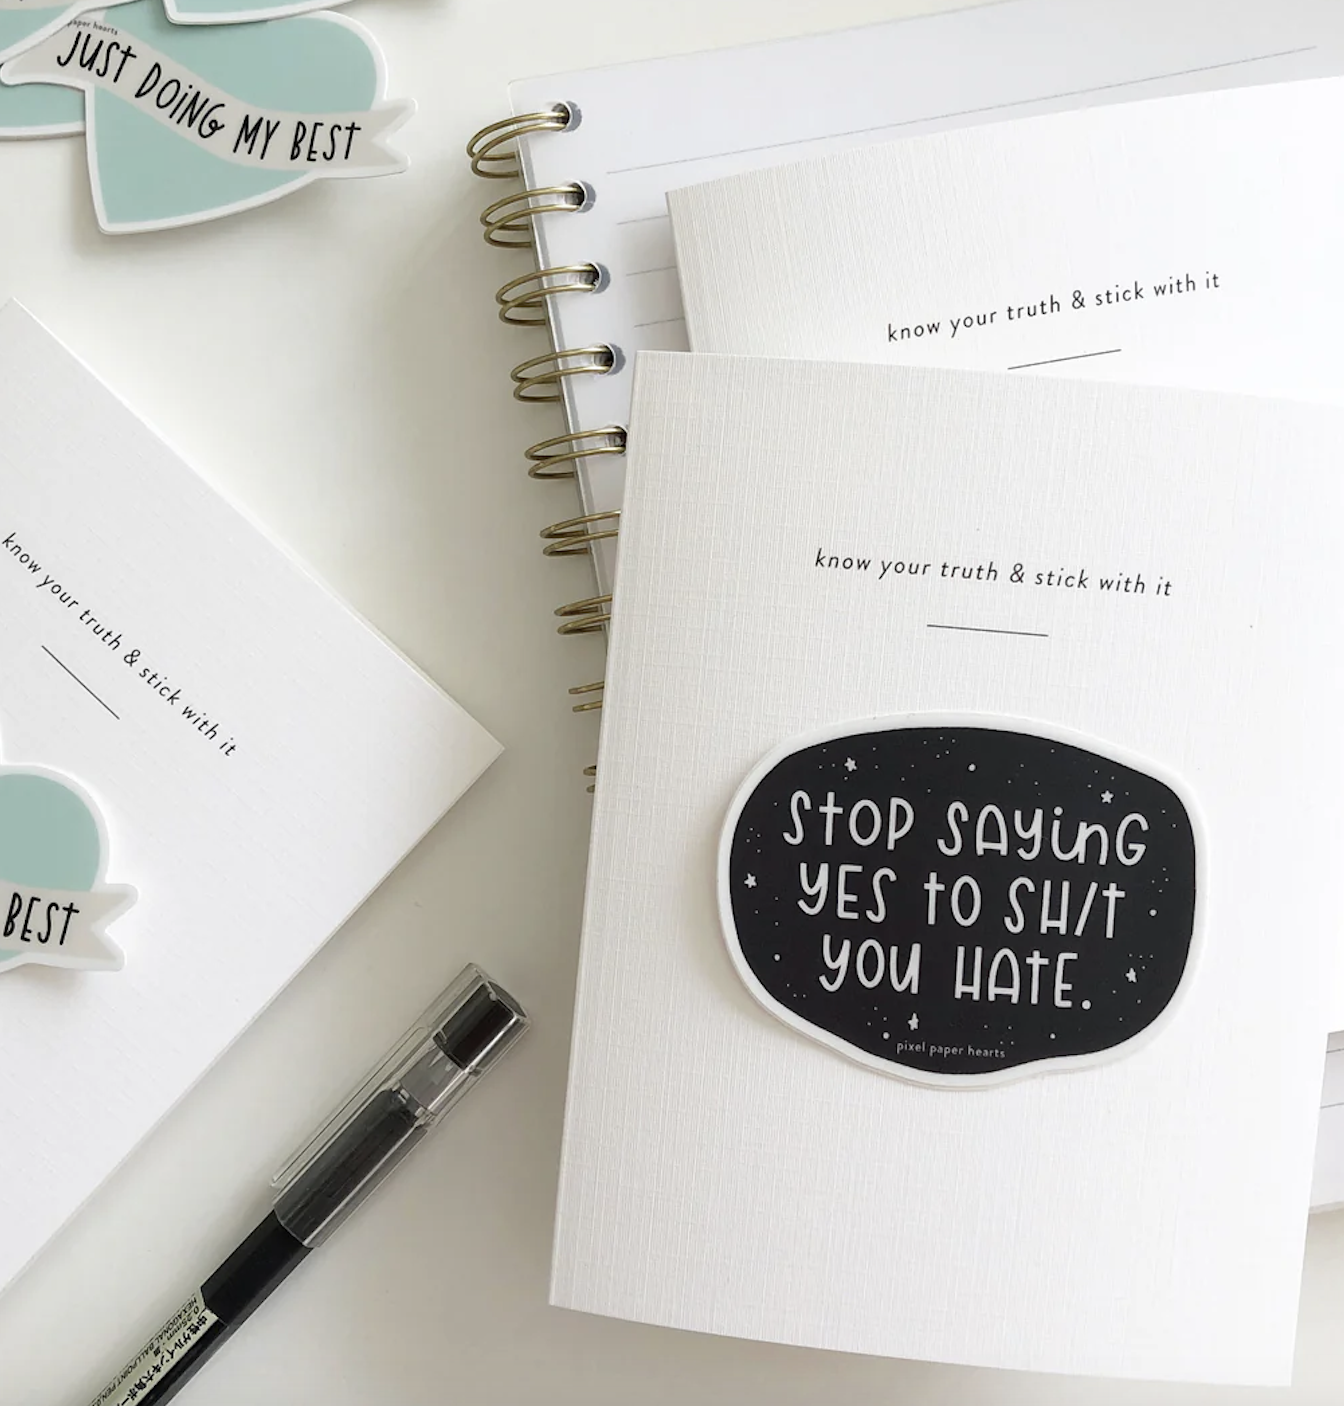 paper hearts
JUST DOING MY BEST
know your truth & stick with it
know your truth & stick with it
know your truth & stick with it
STOP SAYING
YES TO SH/T
YOU HATE.
pixel paper hearts
BEST
0.25mm
HEXAGONAL BALLPOINT PEN